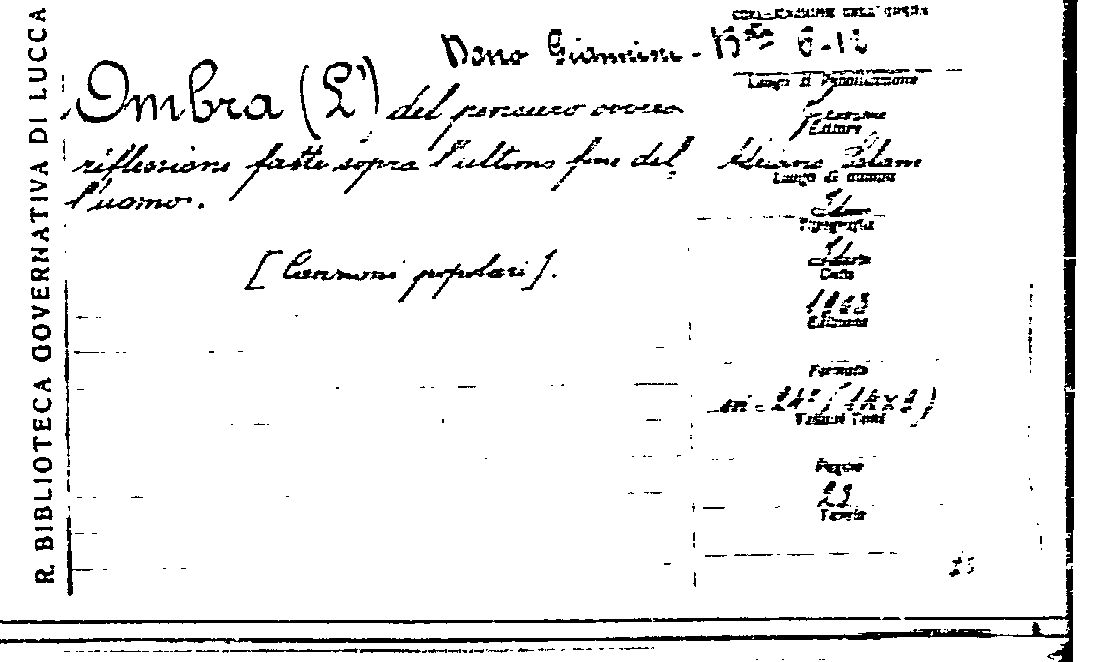 R. BIBLIOTECA GOVERNATIVA DI LUCCA
COLLOCAZIONE DELL'OPERA
Dono Giannini - Bta 6-12
Ombra (L') del pensiero ovvero
riflessione fatte sopra l'ultimo fine del
l'uomo.
[Canzoni popolari].
Luogo di Pubblicazione
Editore
Luogo di stampa
Tipografia
Data
18
Edizione
Formato
in - 24°
Volumi Tomi
Pagine
23
Tavole